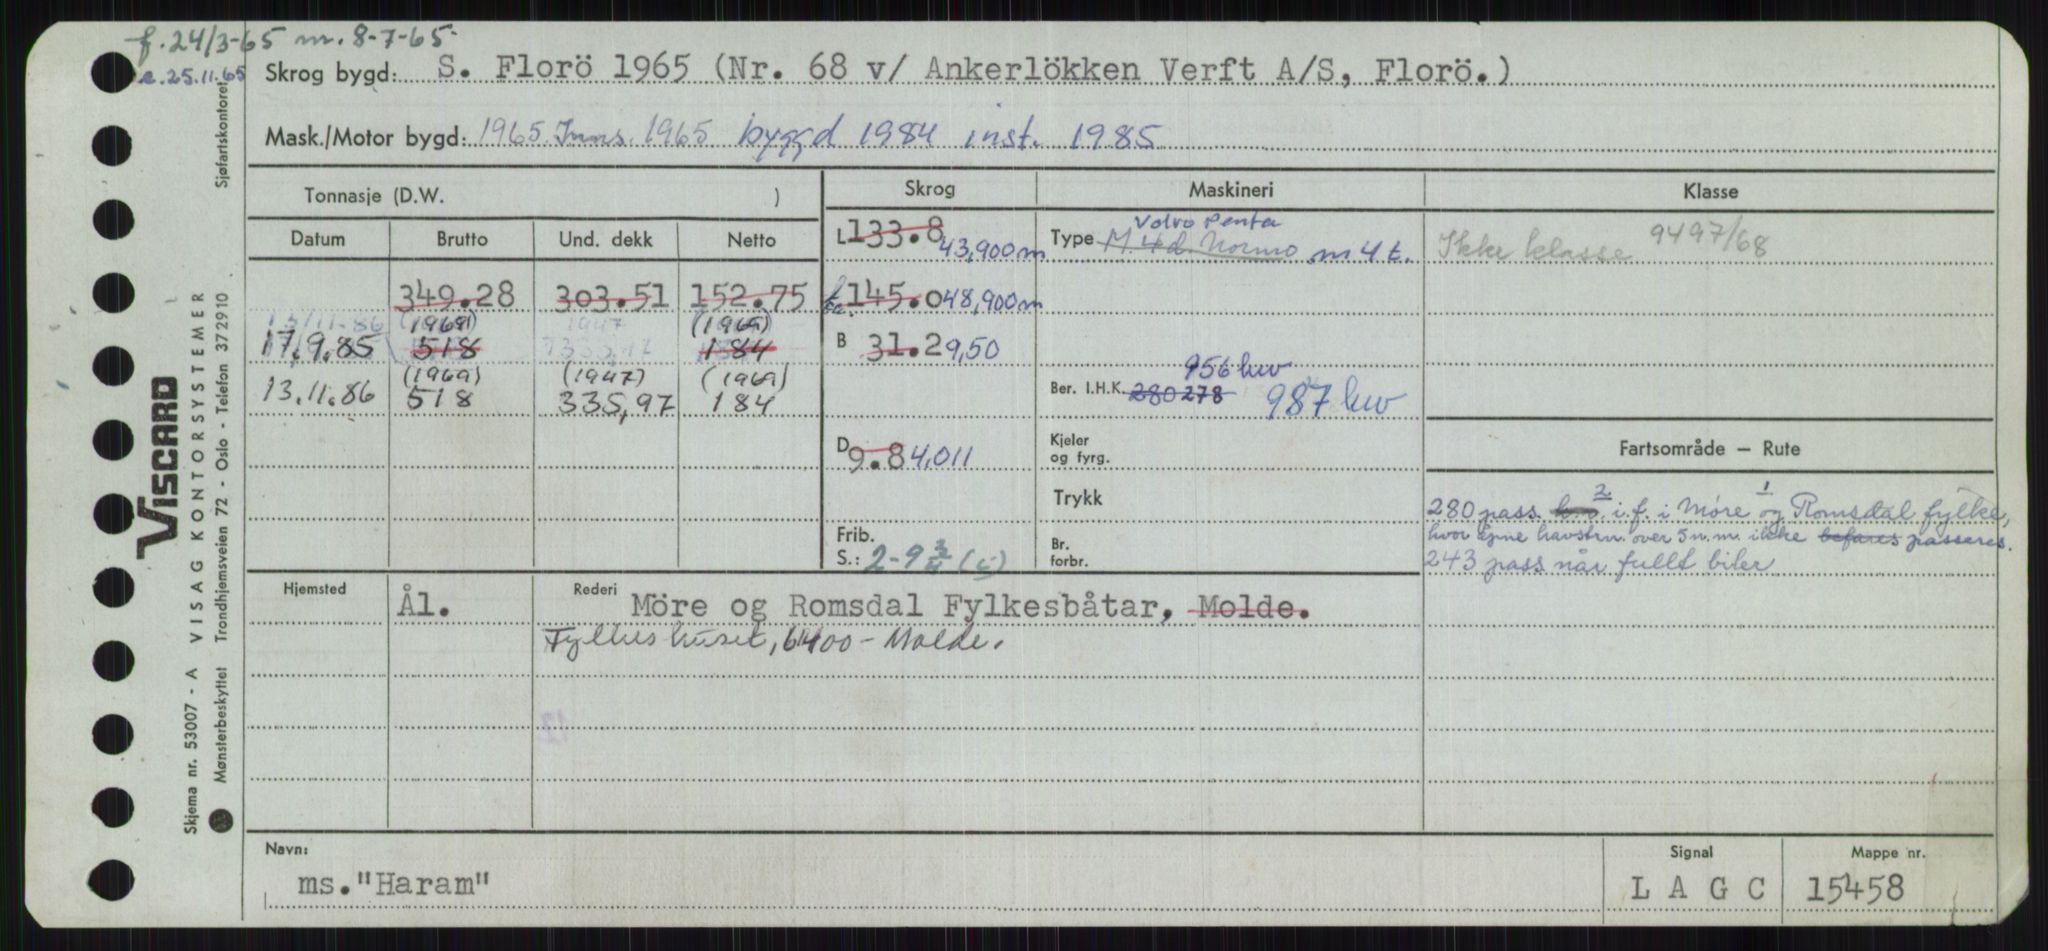 f. 24/3-65 m. 8-7-65
e. 25.11.65
Skrog bygd: S. Florö 1965 (Nr. 68 v/ Ankerlökken Verft A/S, Florö.)
Mask./Motor bygd: 1965 Inns. 1965 byggd 1984 inst. 1985
Tonnasje (D.W. )
Skrog
Maskineri
Klasse
Datum
Brutto
Und. dekk
Netto
L 133.8 43,900 m
Volvo Penta
Type M. 4 d. Normo m 4 t.
Ikke klasse 9497/68
349.28 303.51 152.75
145.0 48,900 m
13/11-86 (1969) 1947 (1969)
17.9.85 518 335,97 184
B 31.2 9,50
(1969) (1947) (1969)
13.11.86 518 335,97 184
956 kw
Ber. I.H.K. 280 278 987 kw
D 9.8 4,011
Kjeler
og fyrg.
Fartsområde – Rute
Trykk
280 pass. i. f. i Møre og Romsdal fylke,
2 1
hvor åpne havstrn. over 5 n.m. ikke befares passeres.
243 pass når fullt biler
Frib.
S.: 2-9 3/4 (i)
Br.
forbr.
Hjemsted Ål.
Rederi Möre og Romsdal Fylkesbåtar, Molde.
Fylkeshuset, 6400 - Molde.
Navn:
ms."Haram"
Signal
L A G C
Mappe nr.
15458
Sjøfartskontoret
VISCARD
VISAG KONTORSYSTEMER
Skjema nr. 53007 - A
Mønsterbeskyttet Trondhjemsveien 72 - Oslo - Telefon 372910